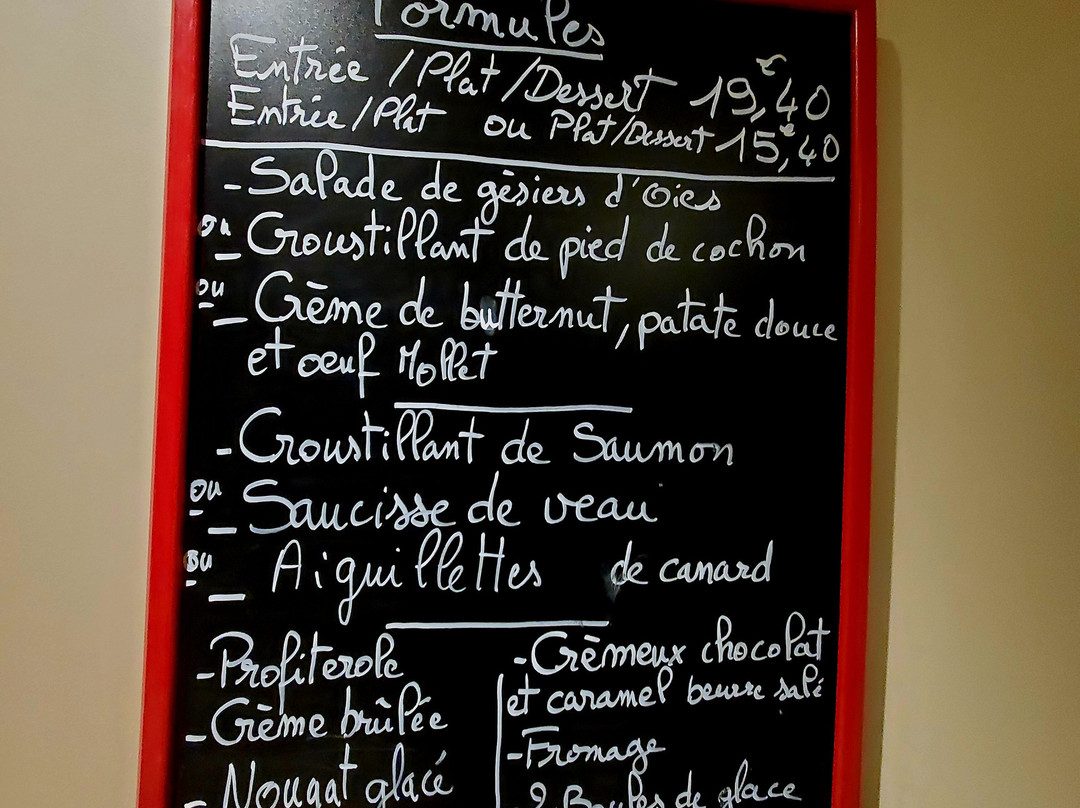 Formules
Entrée / Plat / Dessert 19,€40
Entrée / Plat ou Plat/Dessert 15,€40
- Salade de gésiers d'Oies
ou - Croustillant de pied de cochon
ou - Crème de butternut, patate douce
et oeuf Mollet
- Croustillant de Saumon
ou - Saucisse de veau
ou - Aiguillettes de canard
- Profiterole
- Crème brûlée
- Nougat glacé
- Crèmeux chocolat
et caramel beurre salé
- Fromage
2 Boules de glace